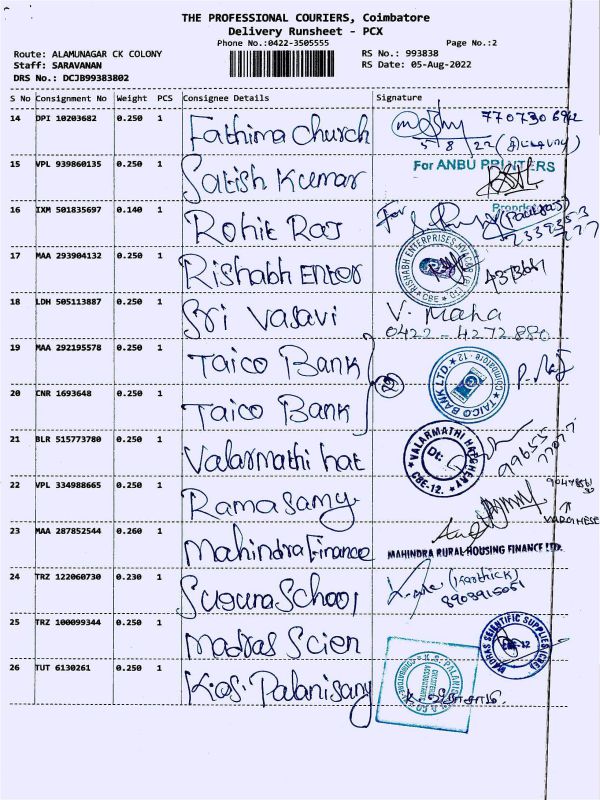 THE PROFESSIONAL COURIERS, Coimbatore
Delivery Runsheet - PCX
Phone No.:0422-3505555
Page No.:2
Route: ALAMUNAGAR CK COLONY
RS No.: 993838
Staff: SARAVANAN
RS Date: 05-Aug-2022
DRS No.: DCJB99383802
S No Consignment No Weight PCS Consignee Details Signature
14 DPI 10203682 0.250 1 Fathima church 770730
5/8/22
15 VPL 939860135 0.250 1 Satish Kumar For ANBU PRINTERS
16 IXM 501835697 0.140 1 Rohit Raj For
17 MAA 293904132 0.250 1 Rishabh Enter RISHABH ENTERPRISES CBE
18 LDH 505113887 0.250 1 Sri Vasavi V. Maha
0422 - 4272880
19 MAA 292195578 0.250 1 Taico Bank TAICO BANK LTD. Coimbatore - 12
20 CNR 1693648 0.250 1 Taico Bank
21 BLR 515773780 0.250 1 Valarmathi hat VALARMATHI HATCHERY CBE-12. Dt: 99655
77077
22 VPL 334988665 0.250 1 Ramasamy
VARGHESE
23 MAA 287852544 0.260 1 Mahindra Finance MAHINDRA RURAL HOUSING FINANCE LTD.
24 TRZ 122060730 0.230 1 Suguna School (Karthick)
8903915051
25 TRZ 100099344 0.250 1 Madras Scien MADRAS SCIENTIFIC SUPPLIES CBE-12
26 TUT 6130261 0.250 1 K.S. Palanisamy K.S. PALANI CHARTERED ACCOUNTANTS COIMBATORE